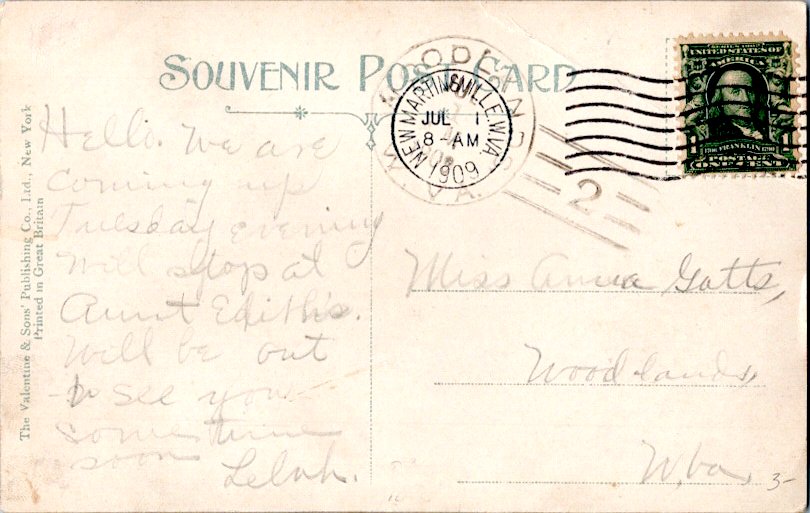 SOUVENIR POST CARD
The Valentine & Sons' Publishing Co., Ltd., New York
Printed in Great Britain
Hello. We are
coming up
Tuesday evening
will stop at
Aunt Edith's.
Will be out
to see you
sometime
soon
Lelah.
NEW MARTINSVILLE, W.VA.
JUL 1
8-AM
1909
W. VA.
2
SERIES 1902
UNITED STATES OF
AMERICA
1706 FRANKLIN 1790
POSTAGE
ONE CENT
Miss Anna Gatts,
Woodlands,
W.va,
3-